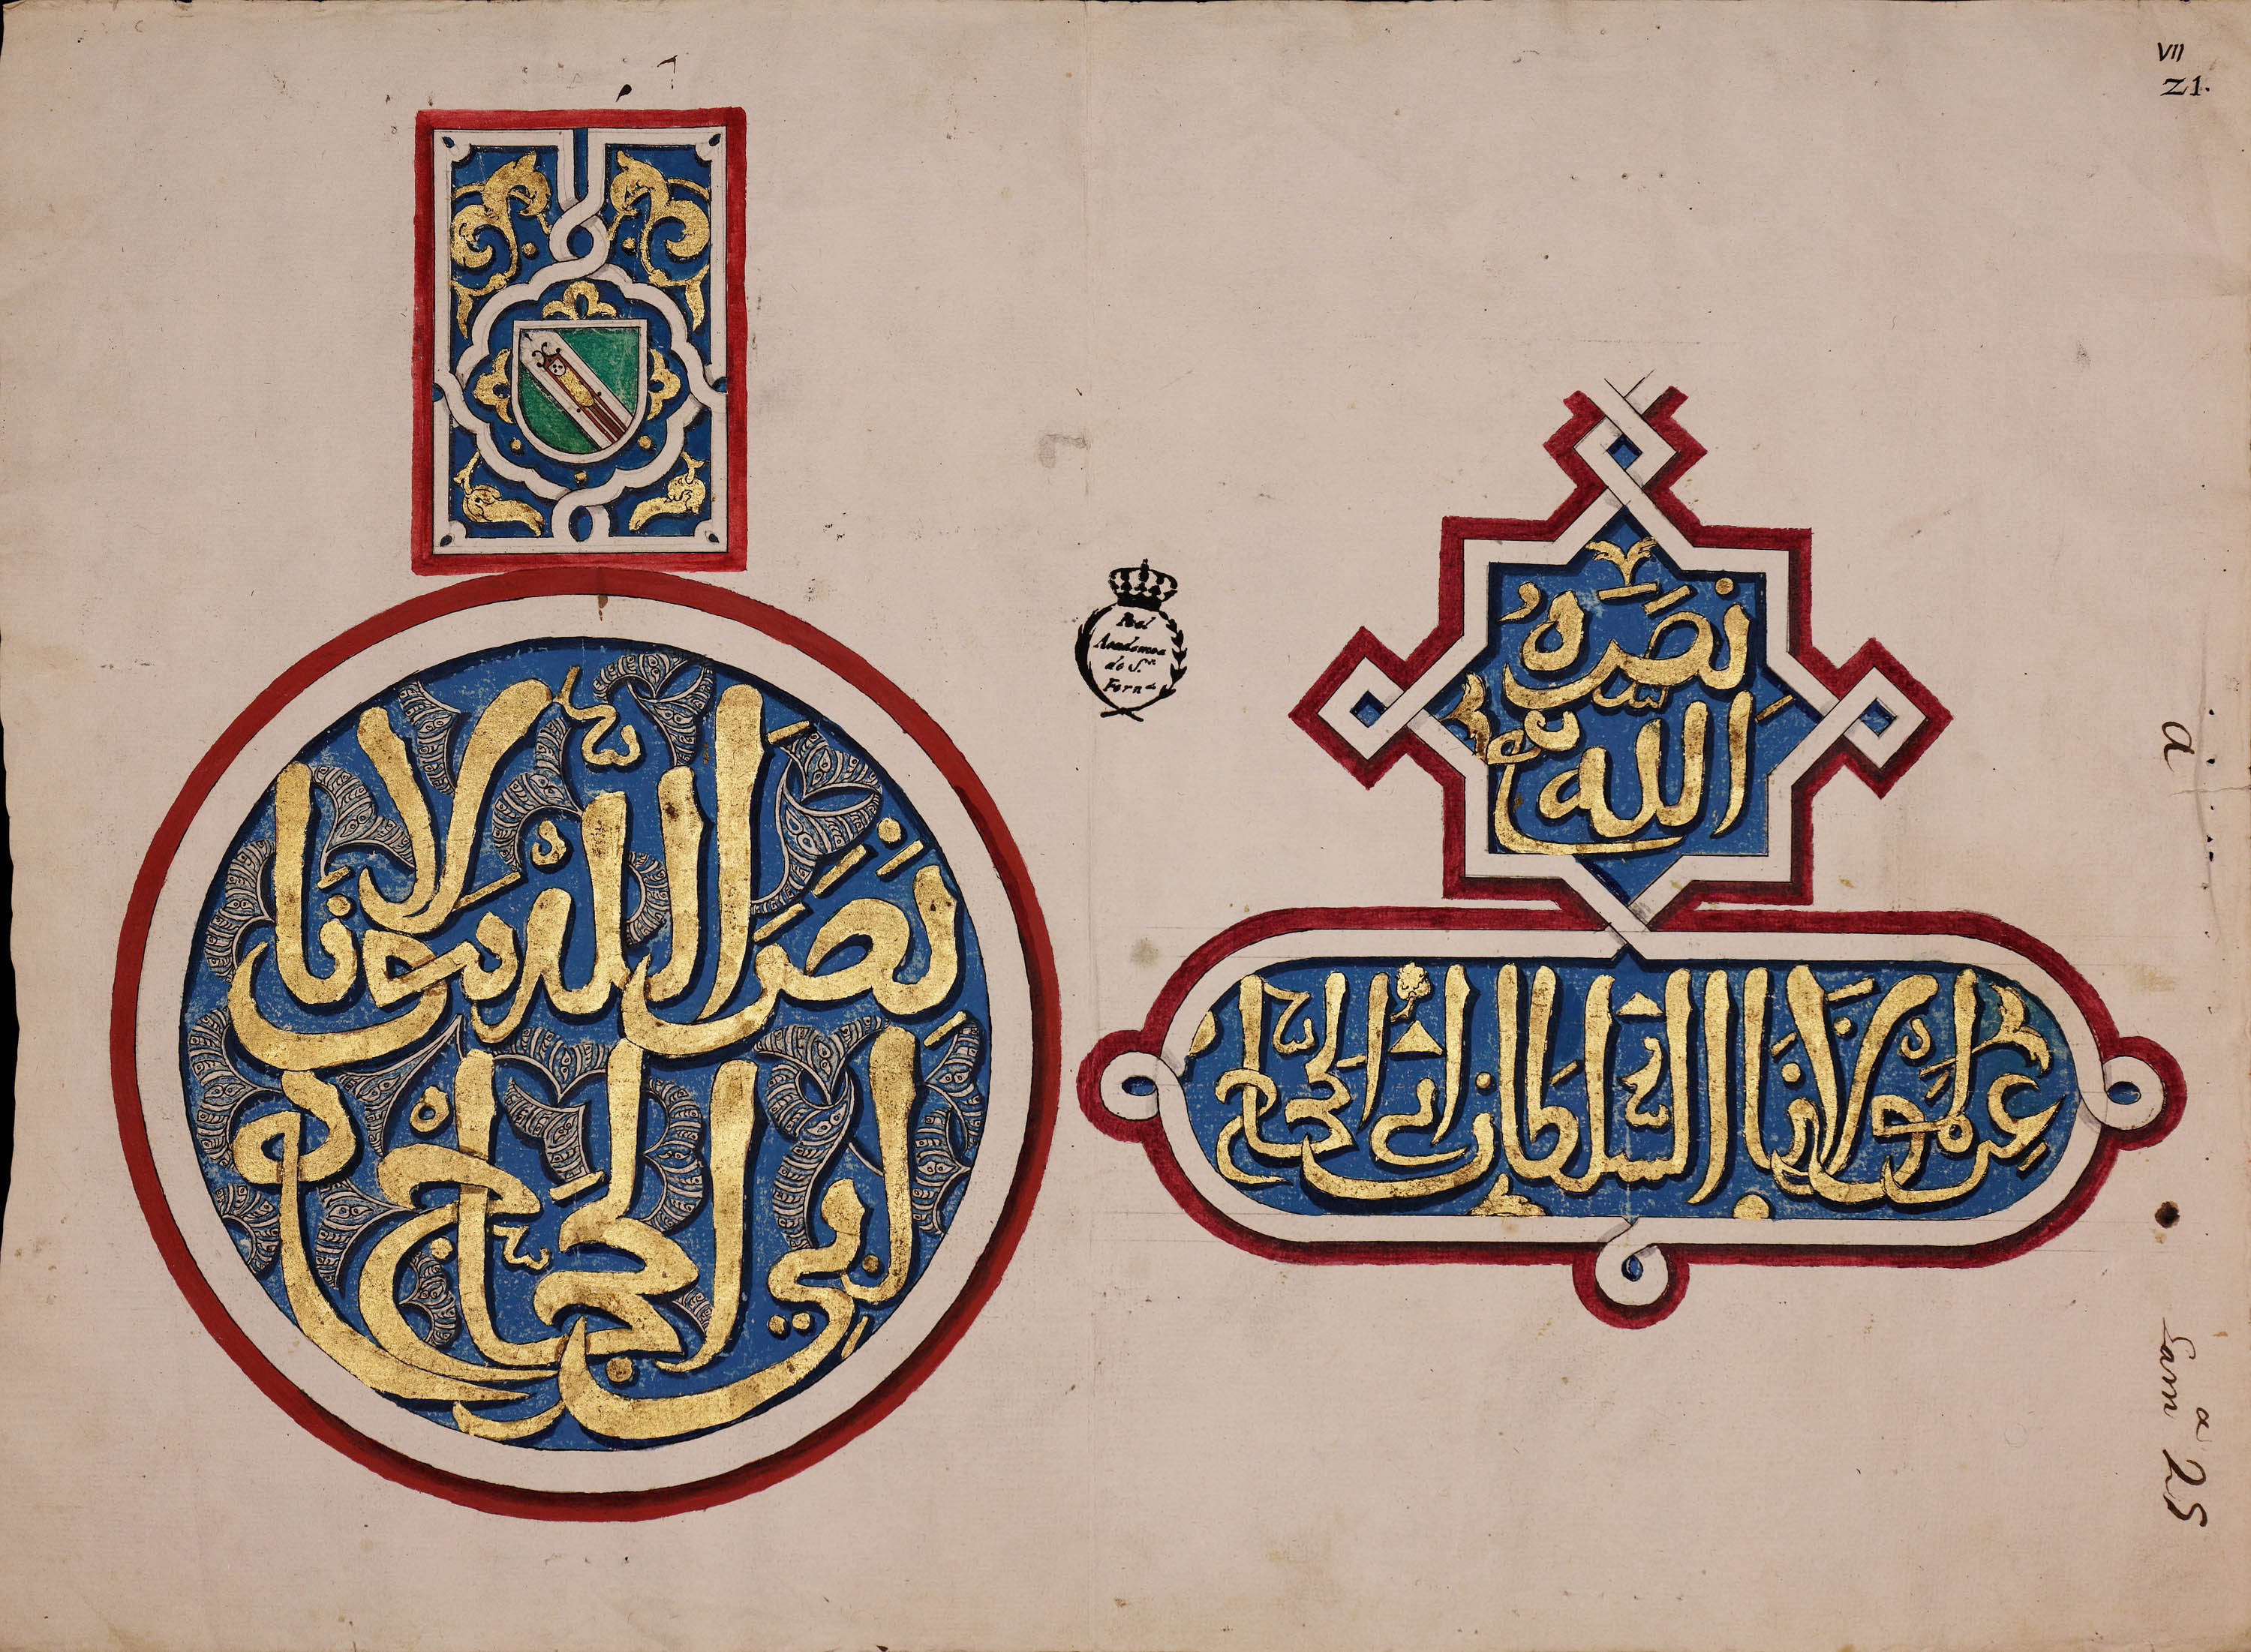 VII
21.
نَصَرَ اللهُ مولانا
ابي الحجاج
نصره
الله
عز لمولانا السلطان ابي الحجاج
Real
Academia
de S.ⁿ
Fern.ᵈᵒ
a
Lam.ᵃ 25